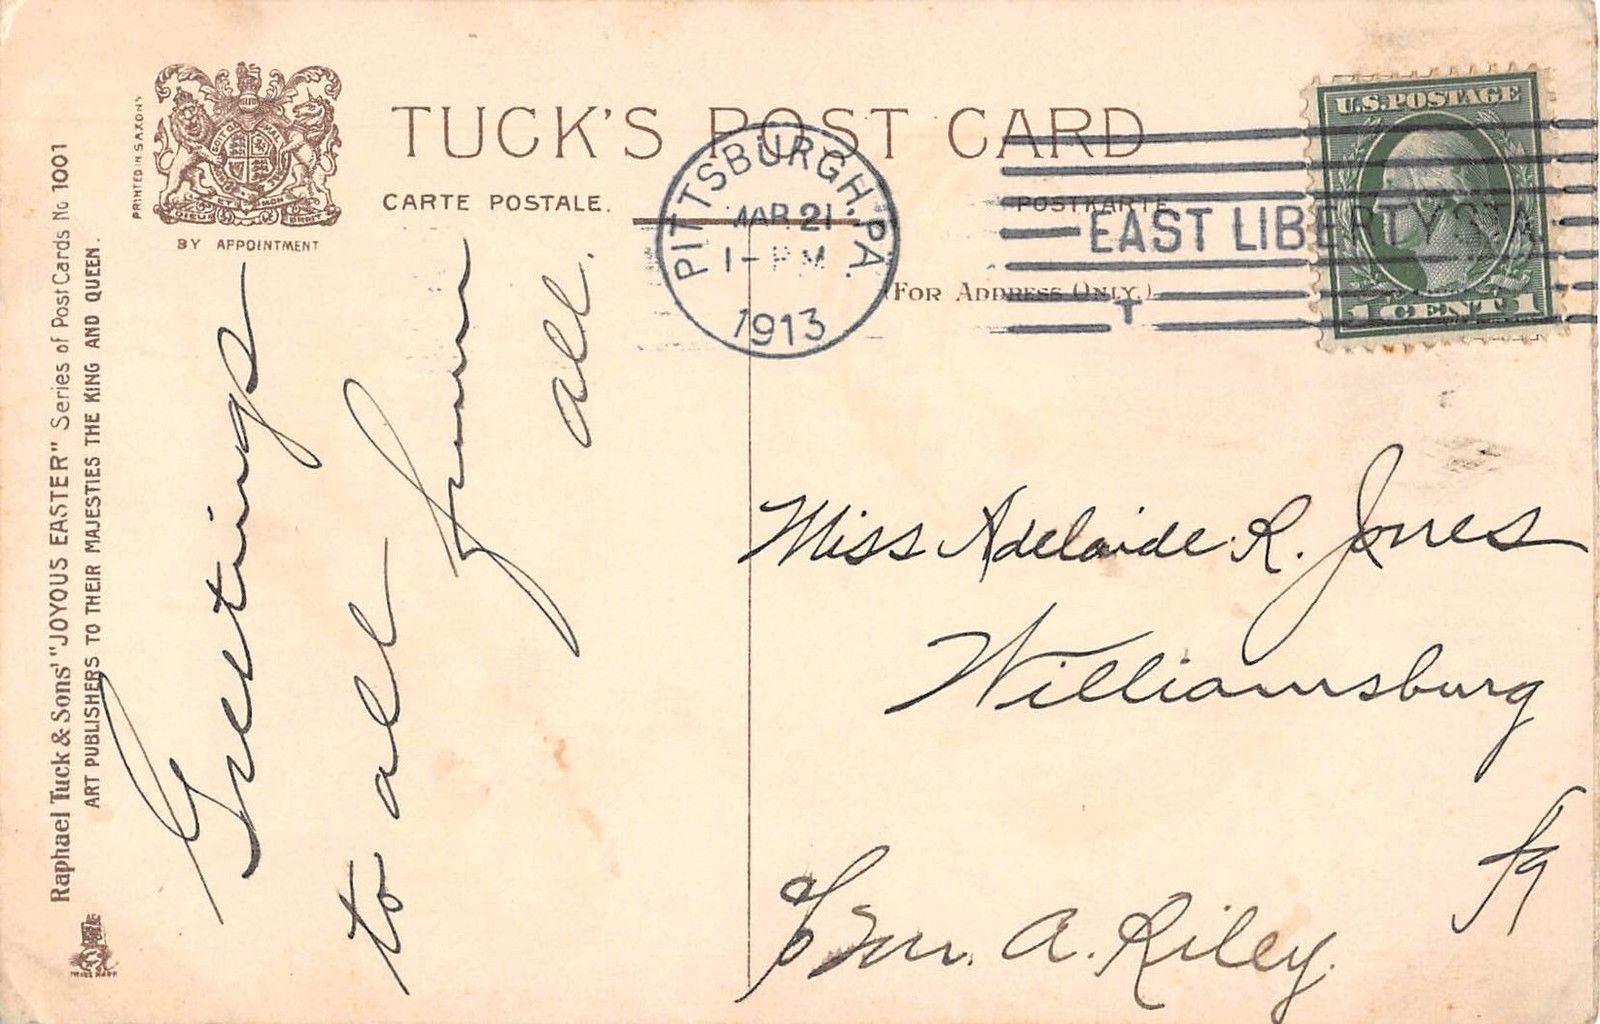 TUCK'S POST CARD
CARTE POSTALE.
POSTKARTE
(FOR ADDRESS ONLY.)
PRINTED IN SAXONY
BY APPOINTMENT
DIEU ET MON DROIT
Raphael Tuck & Sons' "JOYOUS EASTER" Series of Post Cards No 1001
ART PUBLISHERS TO THEIR MAJESTIES THE KING AND QUEEN.
PITTSBURGH, PA.
MAR 21
1913
EAST LIBERTY STA.
U.S. POSTAGE
1 CENT 1
Greetings
to all from
all.
Miss Adelaide R. Jones
Williamsburg
A. Riley.